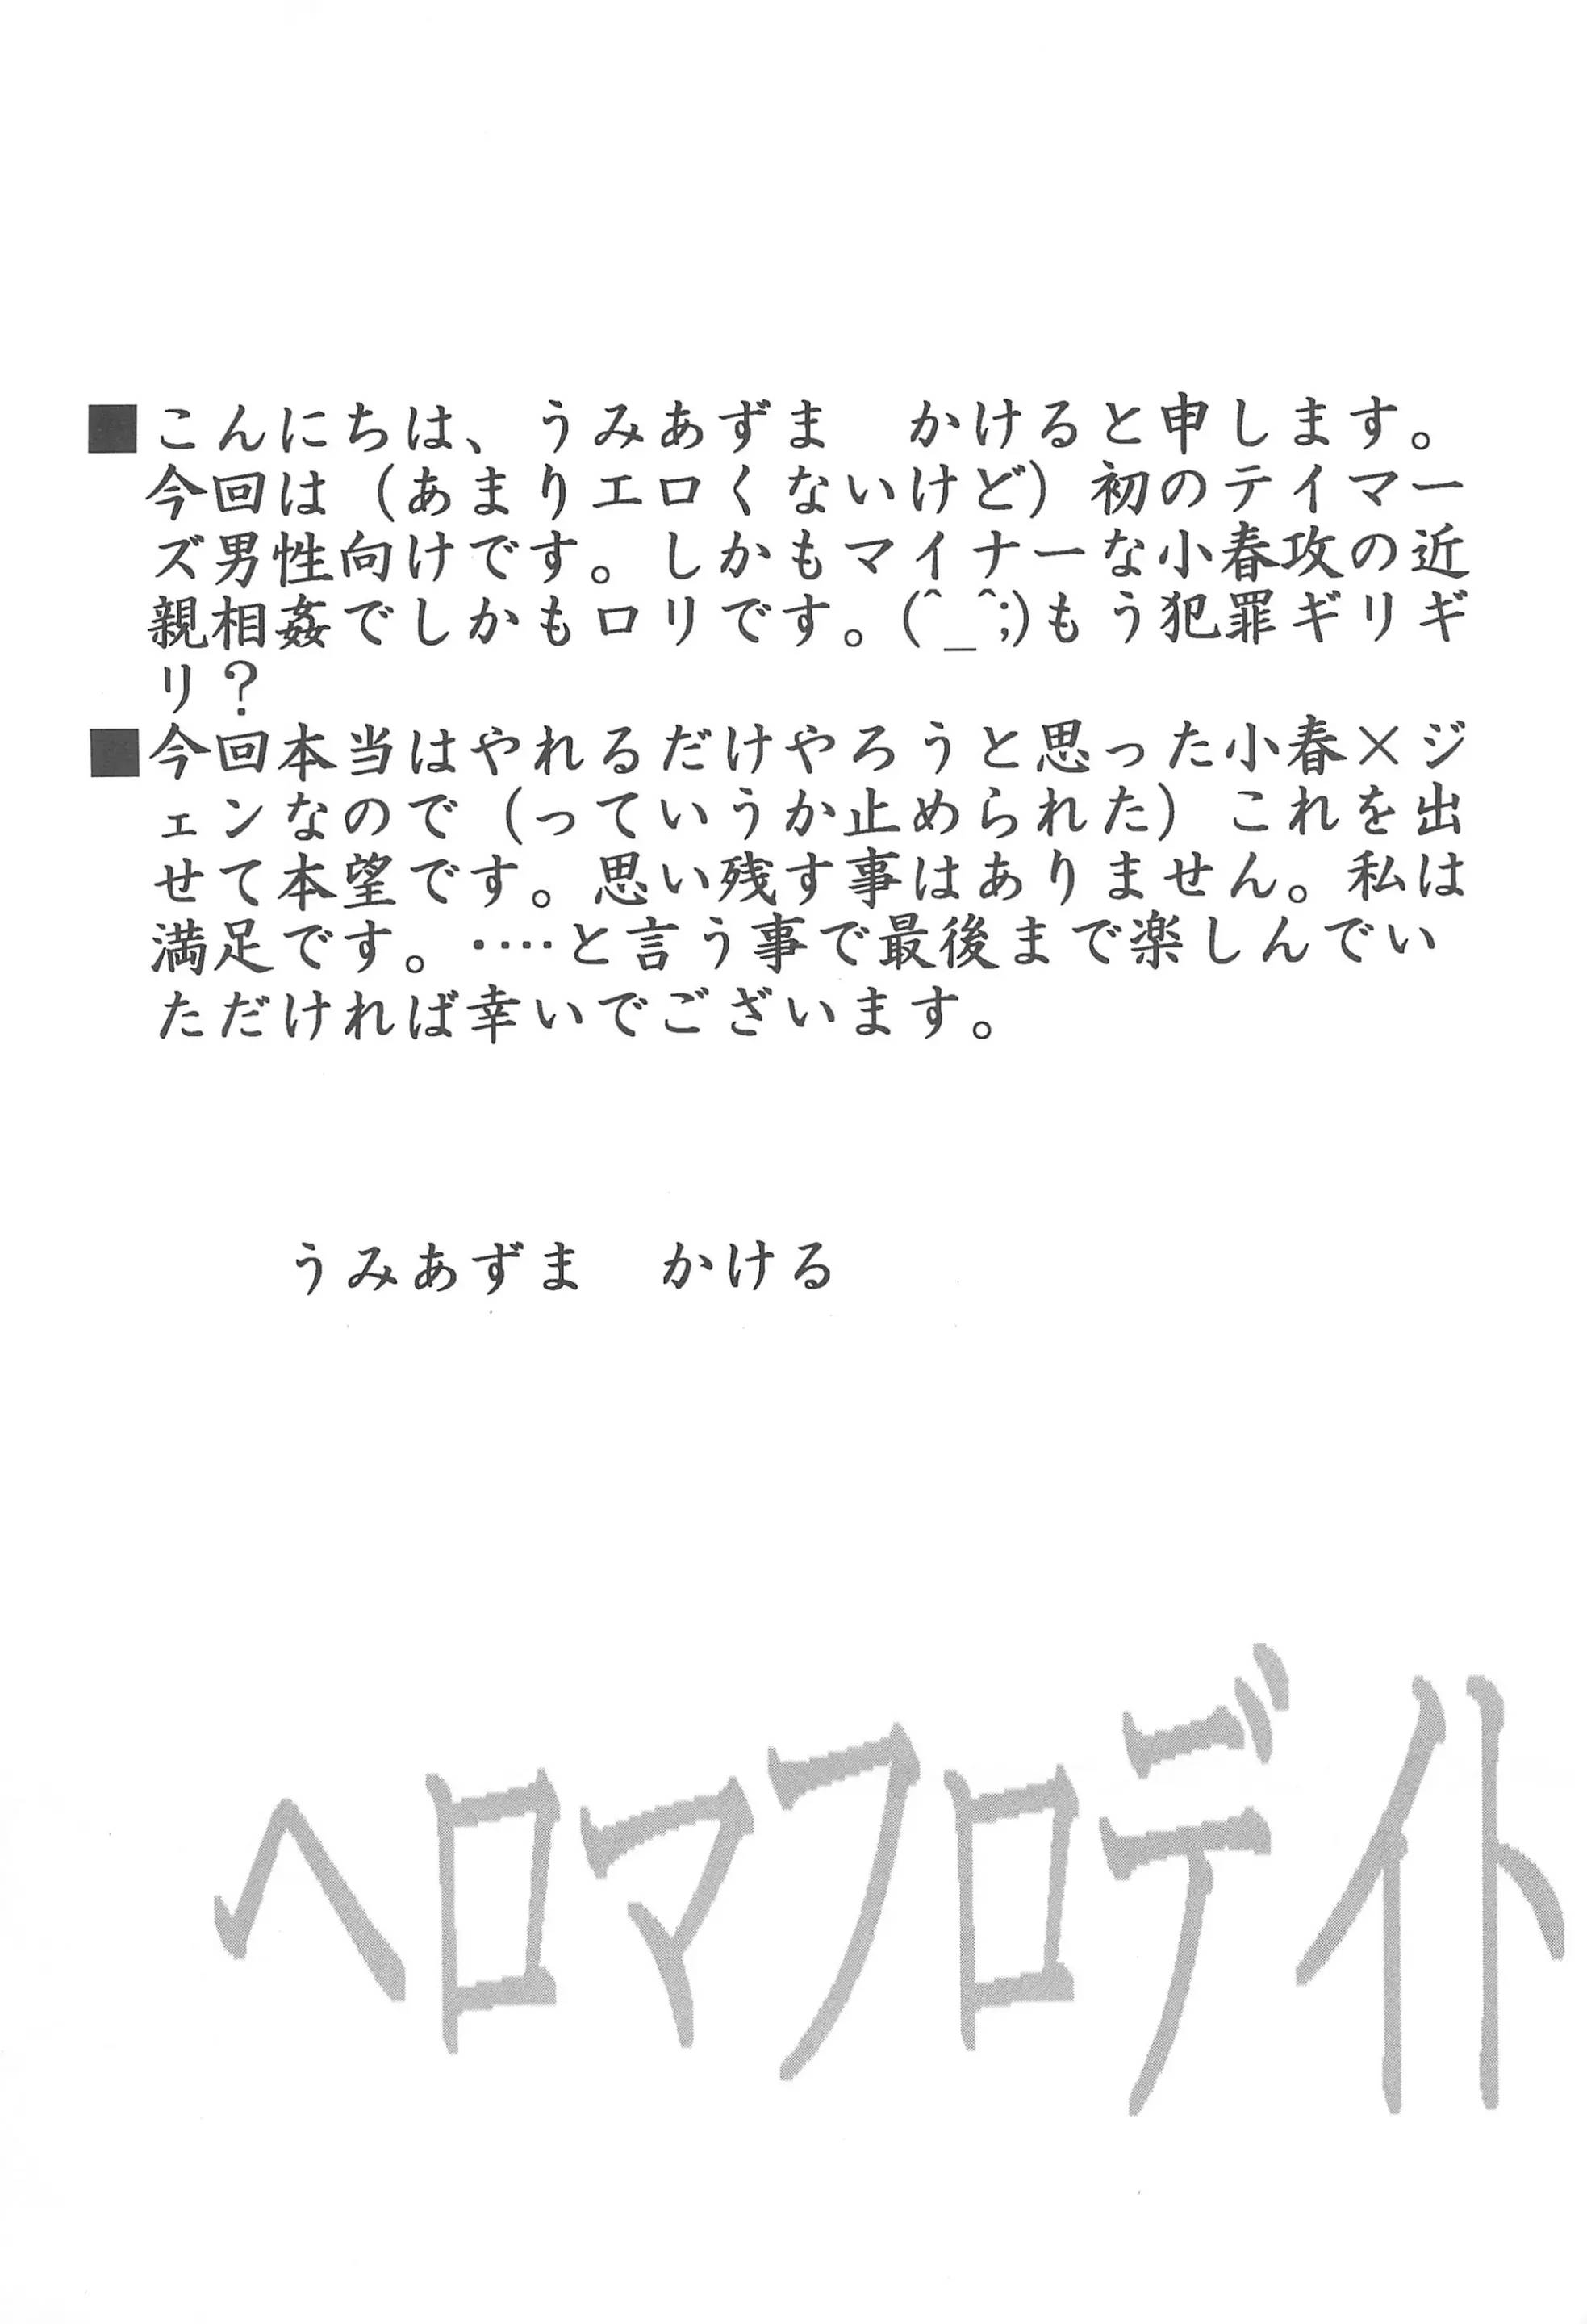 ■こんにちは、うみあずま　かけると申します。
今回は（あまりエロくないけど）初のテイマー
ズ男性向けです。しかもマイナーな小春攻の近
親相姦でしかもロリです。(^_^;)もう犯罪ギリギ
リ？
■今回本当はやれるだけやろうと思った小春×ジ
ェンなので（っていうか止められた）これを出
せて本望です。思い残す事はありません。私は
満足です。‥‥と言う事で最後まで楽しんでい
ただければ幸いでございます。
うみあずま　かける
ヘロマフロデイト